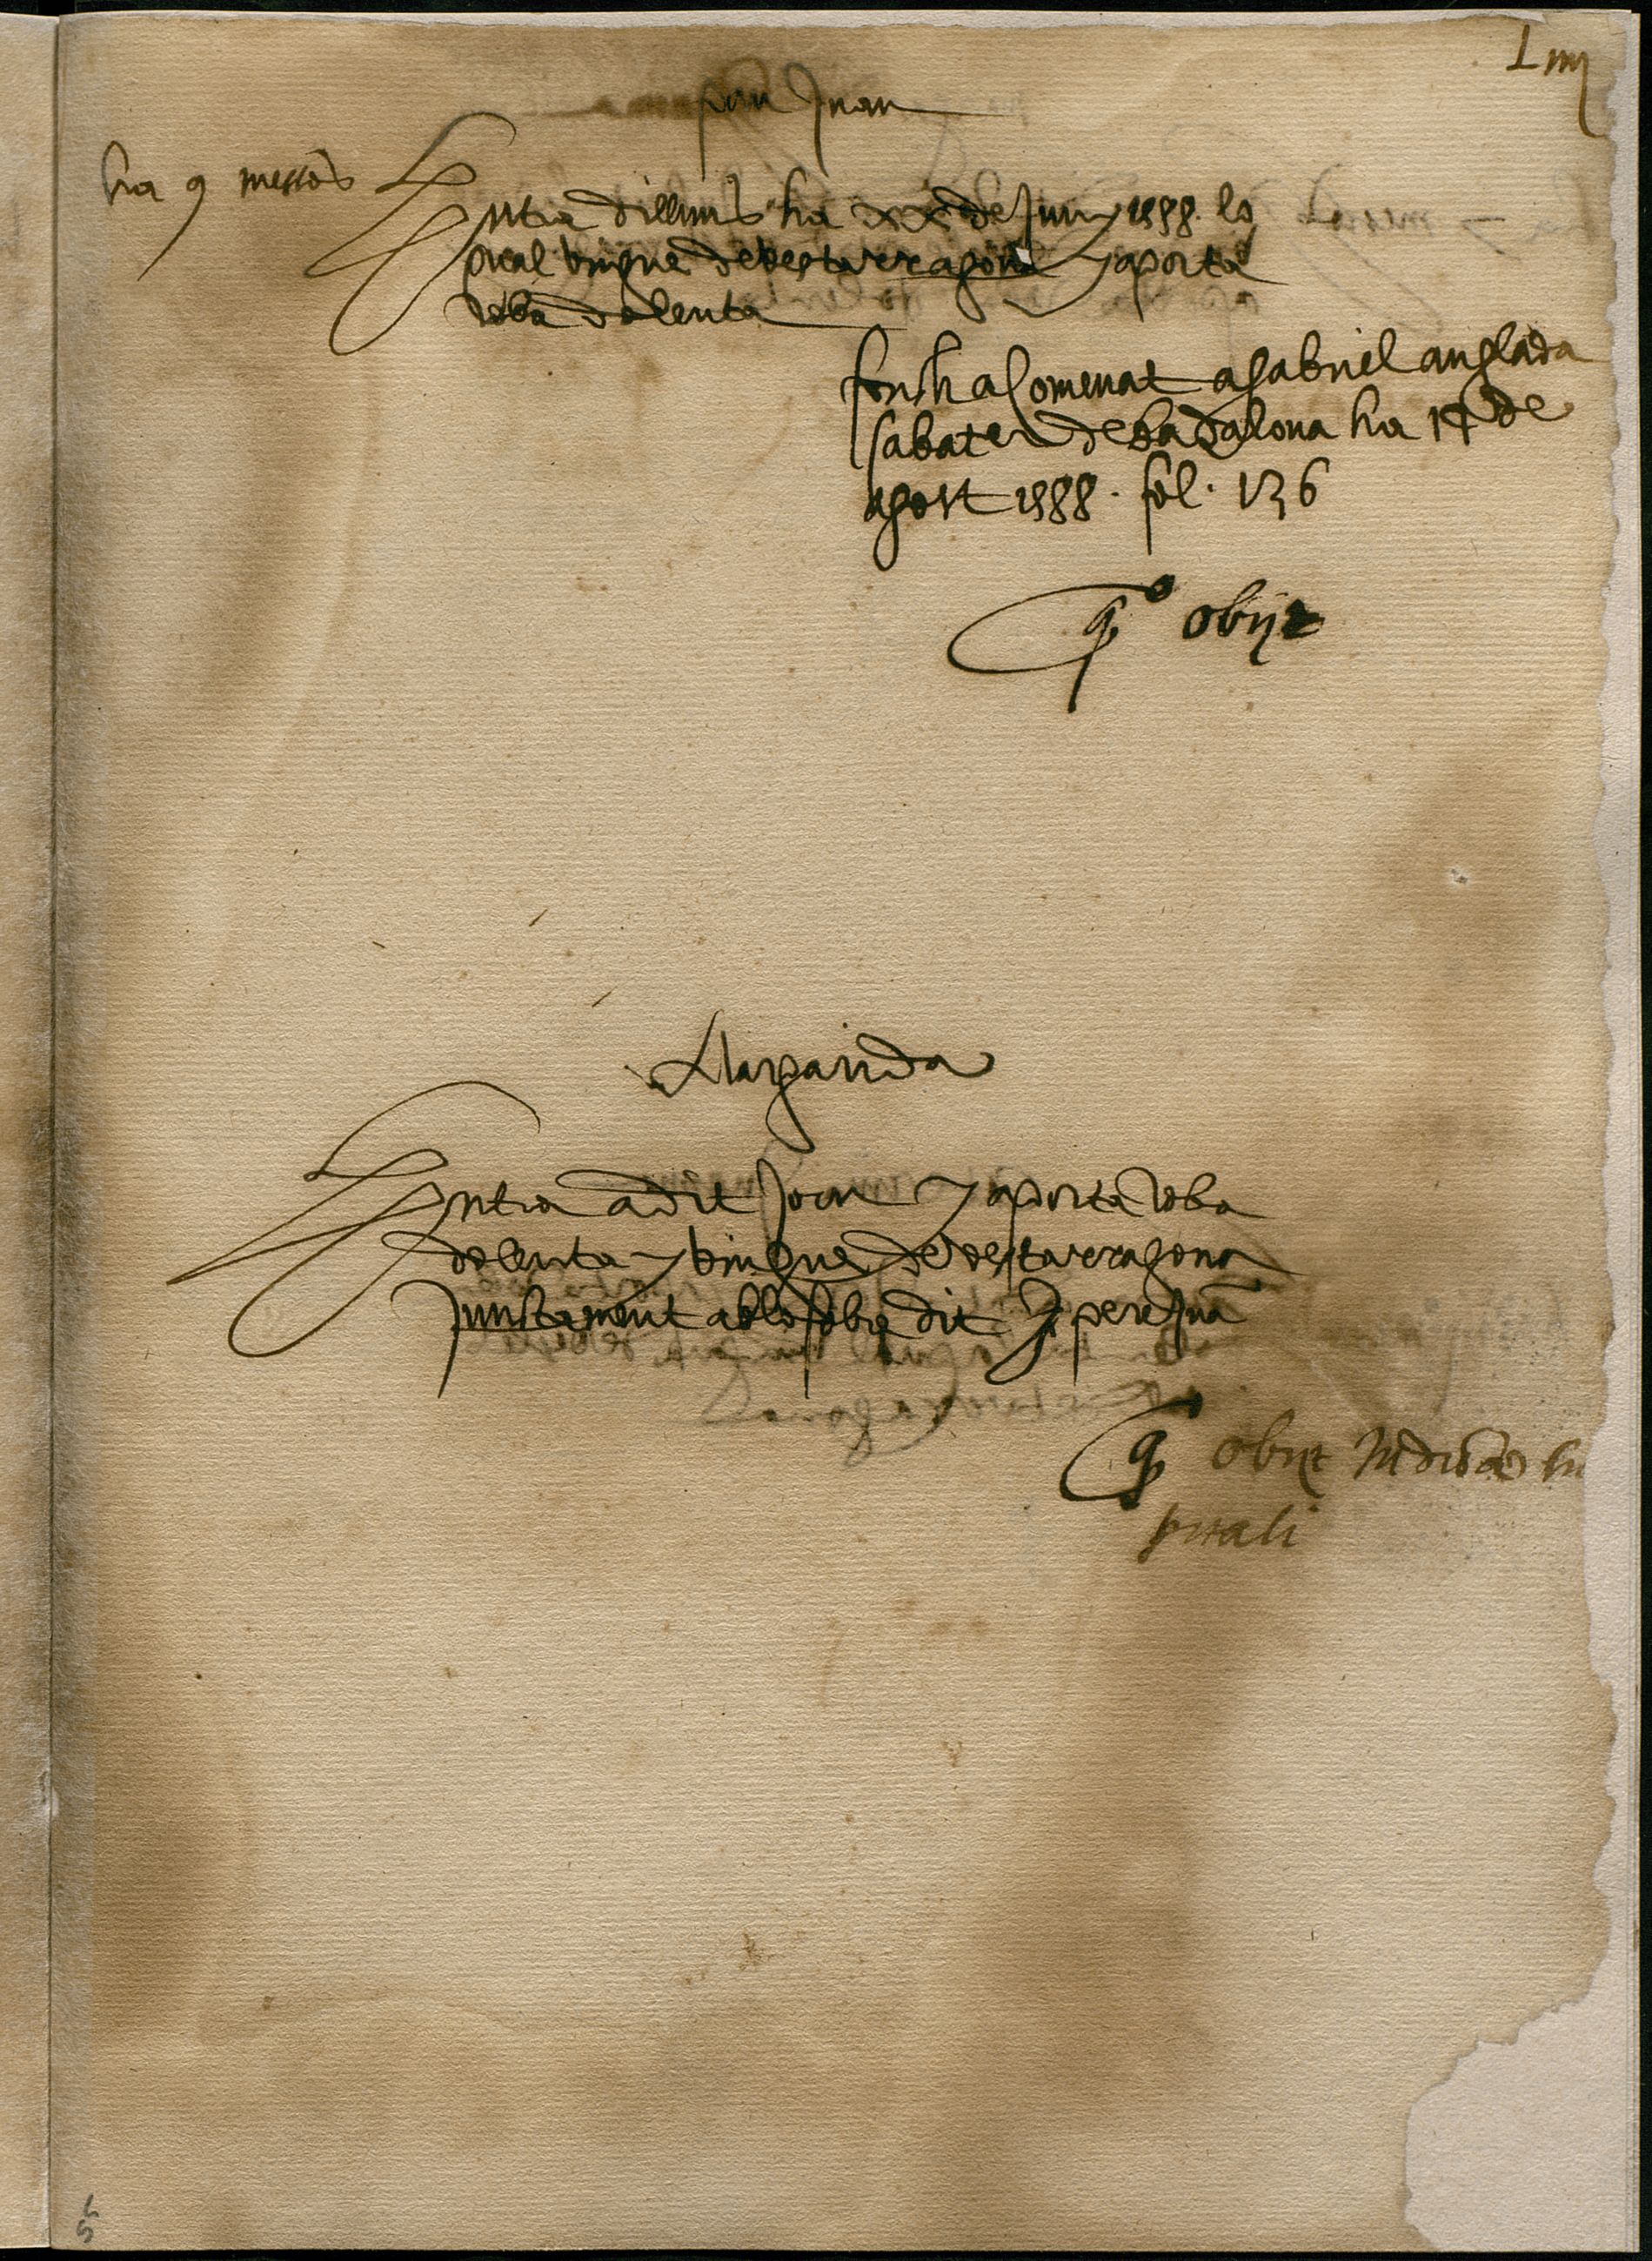 L iiij
pere Juan
ha 9 messos
Entra dilluns ha xx de Juny 1588 lo
qual vingue de ves tarragona y aporta
roba dolenta
fonch acomenat a gabriel anglada
sabater de badalona ha 14 de
agost 1588 . fol . 136
obijt
Margarida
Entra a dit Jorn y aporta roba
dolenta y vingue de ves tarragona
Juntament ab lo sobre dit pere Juã
obijt In dicto hos
pitali
55